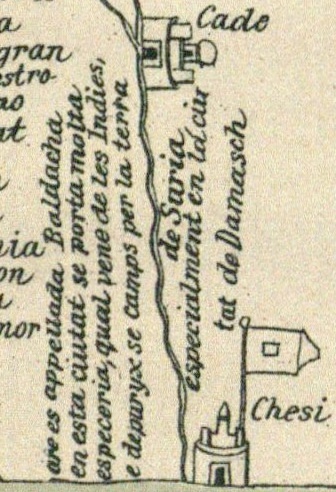 a
gran
estro-
ao
at
nia
on
a
nor
Cade
ore es appellada Baldacha
en esta ciutat se porta molta
especeria, qual vene de les Indies,
e depuryx se camps per la terra
de Suria
especialment en la ciu
tat de Damasch
Chesi.